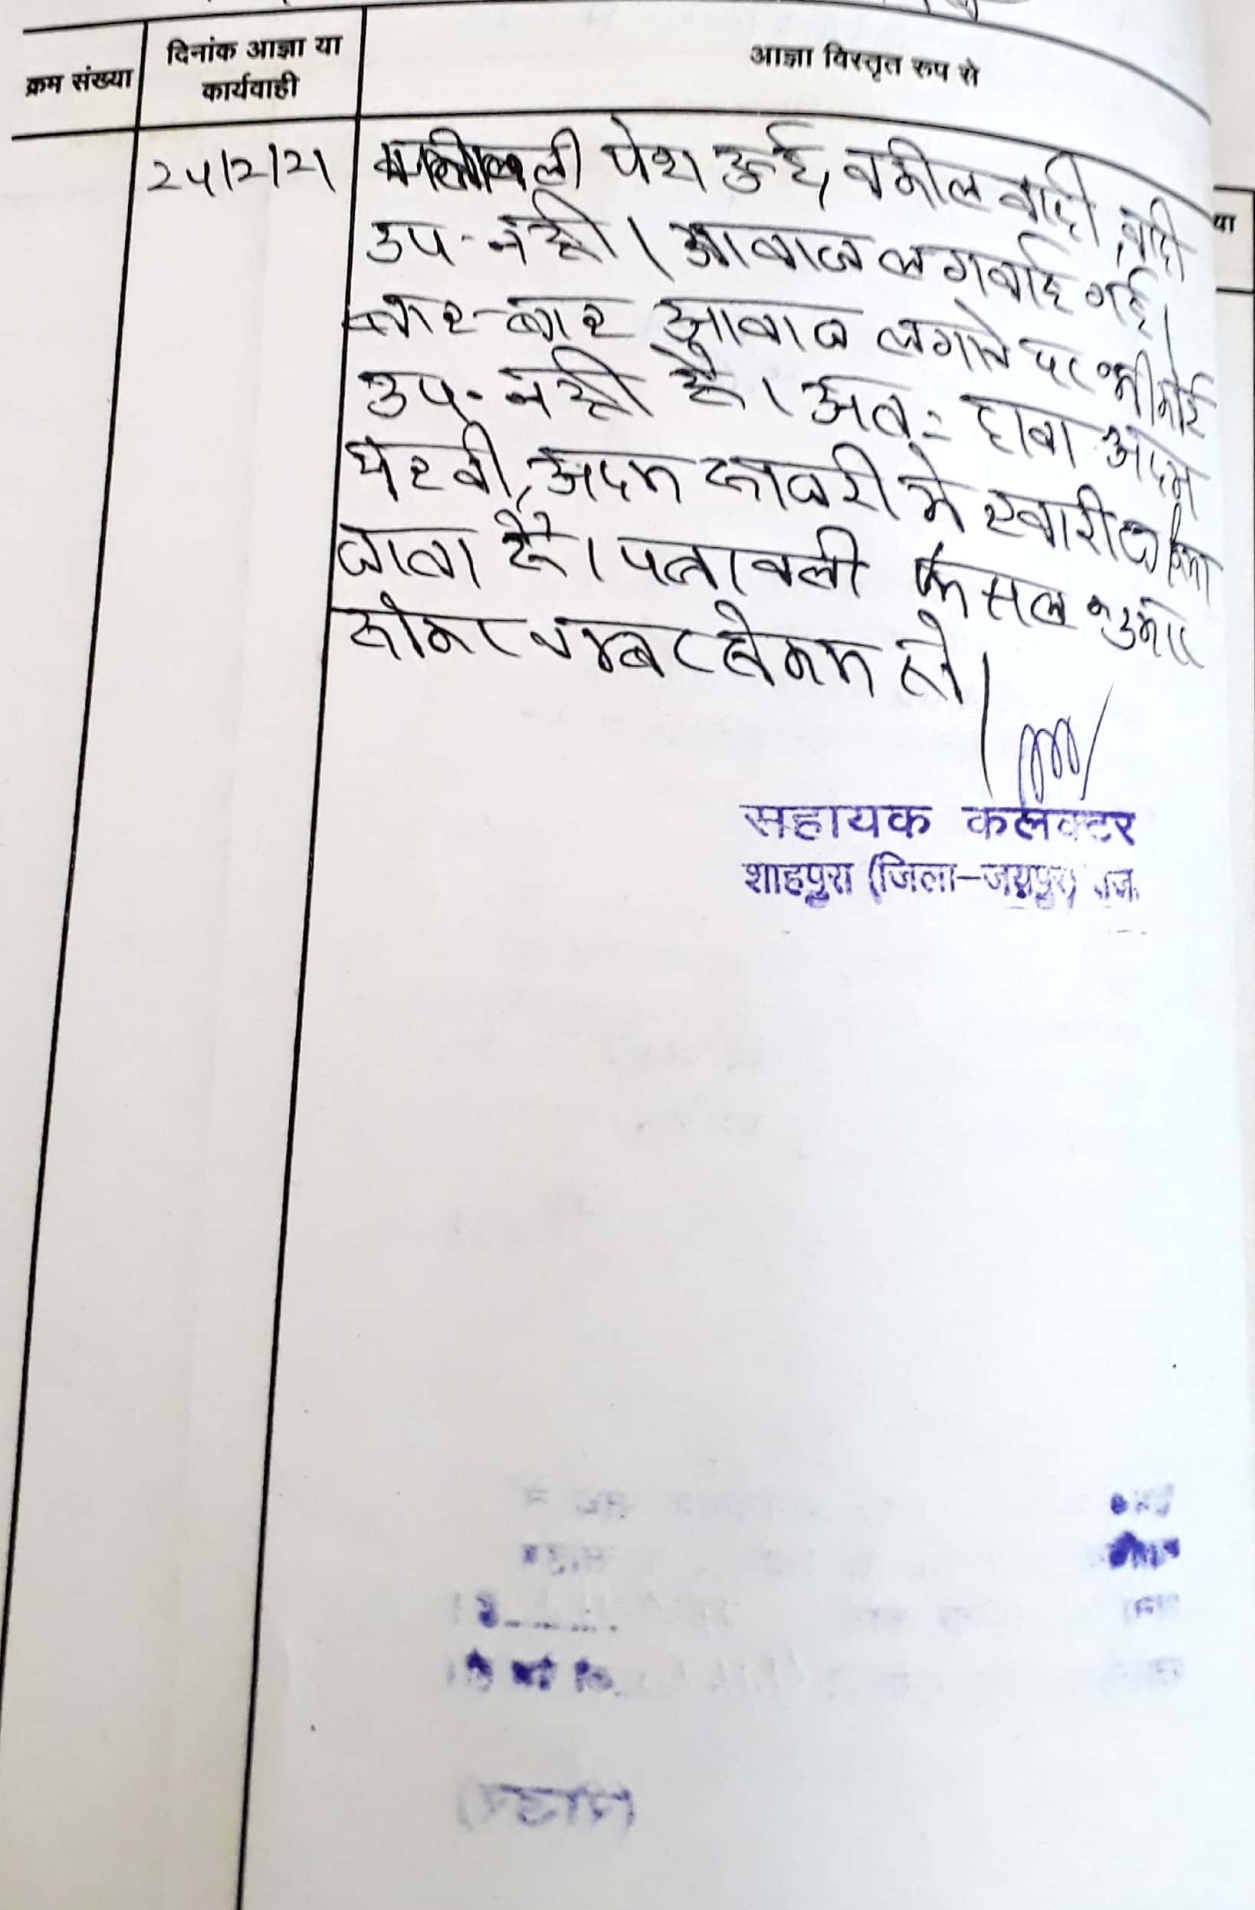 क्रम संख्या
दिनांक आज्ञा या
कार्यवाही
आज्ञा विस्तृत रूप से
या
25/2/21
पत्रावली पेश हुई, वकील वादी, वादी
उप. नही। आवाज लगवाई गई।
बार-बार आवाज लगाने पर भी कोई
उप. नही है। अतः दावा अदम
पैरवी, अदम हाजरी मे खारीज किया
जाता है। पत्रावली फैसल शुमार
होकर नम्बर से कम हो।
सहायक कलक्टर
शाहपुरा (जिला-जयपुर) राज.